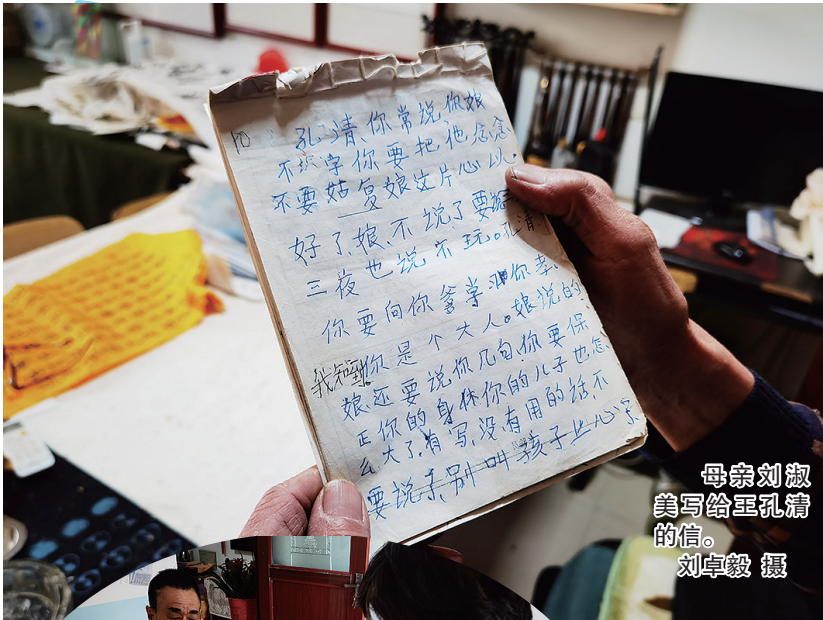 10
孔清、你常说你娘
不识字你要把他念念
不要姑复娘这片心以.
好了、娘、不说了要说
三夜也说不玩。孔清
你要向你爹学习你幸
我知到你是个大人。娘说的
娘、还要说你几句、你要保
正你的身体你的儿子也怎
么大了、有写、没有用的话、不
要说了、别叫孩子止心
母亲刘淑
美写给王孔清
的信。
刘卓毅 摄